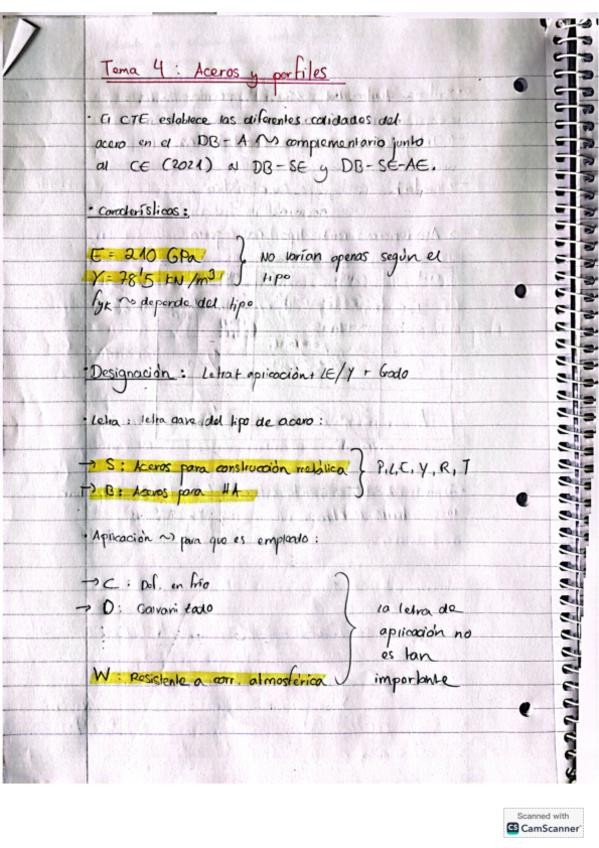 Tema 4 : Aceros y perfiles
· El CTE establece las diferentes calidades del
acero en el DB-A ~> complementario junto
al CE (2021) al DB-SE y DB-SE-AE.
· Características :
E = 210 GPa
γ = 78'5 kN/m³
} No varían apenas según el
tipo
fyk ~> depende del tipo
· Designación : Letra + aplicación + LE/Y + Grado
· Letra : letra clave del tipo de acero :
→ S : Aceros para construcción metálica
→ B : Aceros para HA
} P, L, C, Y, R, T
· Aplicación ~> para que es empleado :
→ C : Def. en frío
→ D : Galvanizado
⋮
W : Resistente a corr. atmosférica
} la letra de
aplicación no
es tan
importante
Scanned with
CS CamScanner